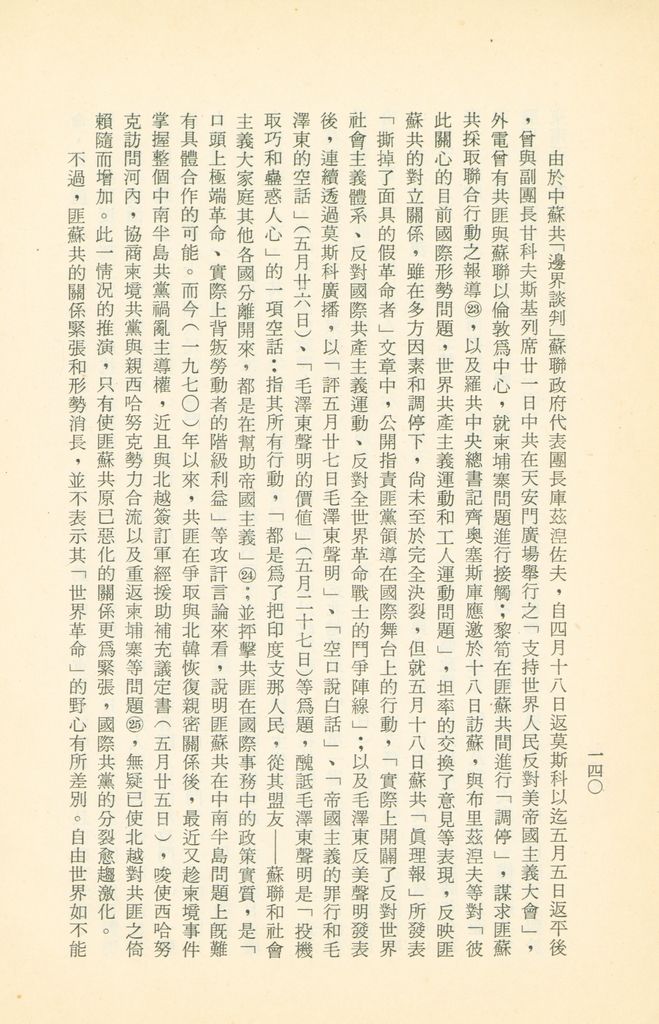 一四〇
由於中蘇共「邊界談判」蘇聯政府代表團長庫茲湼佐夫，自四月十八日返莫斯科以迄五月五日返平後
，曾與副團長甘科夫斯基列席廿一日中共在天安門廣場舉行之「支持世界人民反對美帝國主義大會」，
外電曾有共匪與蘇聯以倫敦爲中心，就柬埔寨問題進行接觸；黎筍在匪蘇共間進行「調停」，謀求匪蘇
共採取聯合行動之報導㉓，以及羅共中央總書記齊奧塞斯庫應邀於十八日訪蘇，與布里茲湼夫等對「彼
此關心的目前國際形勢問題，世界共產主義運動和工人運動問題」，坦率的交換了意見等表現，反映匪
蘇共的對立關係，雖在多方因素和調停下，尙未至於完全決裂，但就五月十八日蘇共「眞理報」所發表
「撕掉了面具的假革命者」文章中，公開指責匪黨領導在國際舞台上的行動，「實際上開闢了反對世界
社會主義體系、反對國際共產主義運動、反對全世界革命戰士的鬥爭陣線」；以及毛澤東反美聲明發表
後，連續透過莫斯科廣播，以「評五月廿七日毛澤東聲明」、「空口說白話」、「帝國主義的罪行和毛
澤東的空話」（五月廿六日）、「毛澤東聲明的價值」（五月二十七日）等爲題，醜詆毛澤東聲明是「投機
取巧和蠱惑人心」的一項空話：指其所有行動，「都是爲了把印度支那人民，從其盟友——蘇聯和社會
主義大家庭其他各國分離開來，都是在幫助帝國主義」㉔；並抨擊共匪在國際事務中的政策實質，是「
口頭上極端革命、實際上背叛勞動者的階級利益」等攻訐言論來看，說明匪蘇共在中南半島問題上旣難
有具體合作的可能。而今（一九七〇）年以來，共匪在爭取與北韓恢復親密關係後，最近又趁柬境事件
掌握整個中南半島共黨禍亂主導權，近且與北越簽訂軍經援助補充議定書（五月廿五日），唆使西哈努
克訪問河內，協商柬境共黨與親西哈努克勢力合流以及重返柬埔寨等問題㉕，無疑已使北越對共匪之倚
賴隨而增加。此一情況的推演，只有使匪蘇共原已惡化的關係更爲緊張，國際共黨的分裂愈趨激化。
不過，匪蘇共的關係緊張和形勢消長，並不表示其「世界革命」的野心有所差別。自由世界如不能